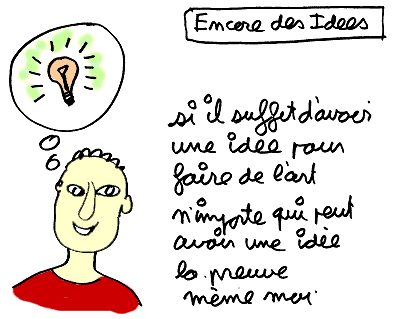 Encore des Idees
si il suffit d'avoir
une idée pour
faire de l'art
n'importe qui peut
avoir une idée
la preuve
même moi.